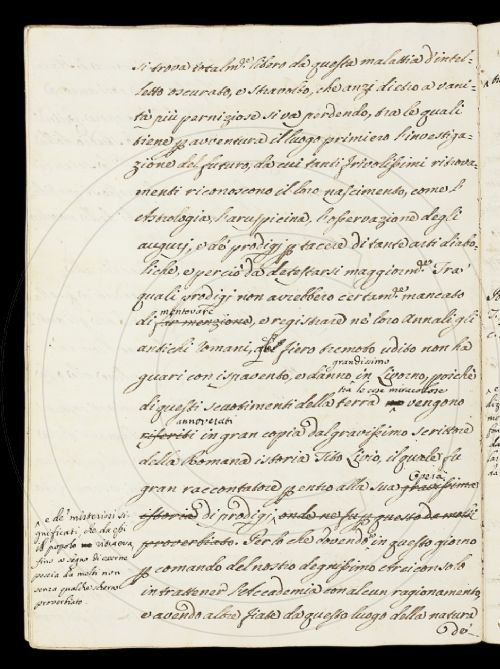 si trova totalm.te libero da questa malattia d'intel-
letto oscurato, e stravolto, che anzi dietro a vani-
tà più perniziose si va perdendo, tra le quali
tiene p avventura il luogo primiero l'investiga-
zione del futuro, da cui tanti frivolissimi ritrova-
menti riconoscono il loro nascimento, come l'
Astrologia, l'aruspicina, l'osservazione degli
augurj, e dè prodigj p tacere di tante arti diabo-
liche, e perciò da detestarsi maggiorm.te Tra
quali prodigj non avrebbero certam.te mancato
mentovare
di far menzione, e registrare nè loro Annali gli
antichi Romani, del fiero tremoto udito non ha
grandissimo
guari con ispavento, e danno in Livorno, poichè
tra le cose miracolose
di questi scuotimenti della terra vengono
annoverati
riferiti in gran copia dal gravissimo scrittore
della Romana istoria Tito Livio, il quale fu
Copia
gran raccontatore p entro alla sua gravissima
istoria di prodigj, onde ne fu p questo da molti
proverbiato. Perlochè dovendo in questo giorno
p comando del nostro degnissimo Arciconsolo
intrattener l'Accademia con alcun ragionamento,
e avendo altre fiate da questo luogo della natura
de-
e dè misteriosi si-
gnificati, che da chi
il popolo
fino a segno di
da molti non
senza qualche scherno
proverbiato.